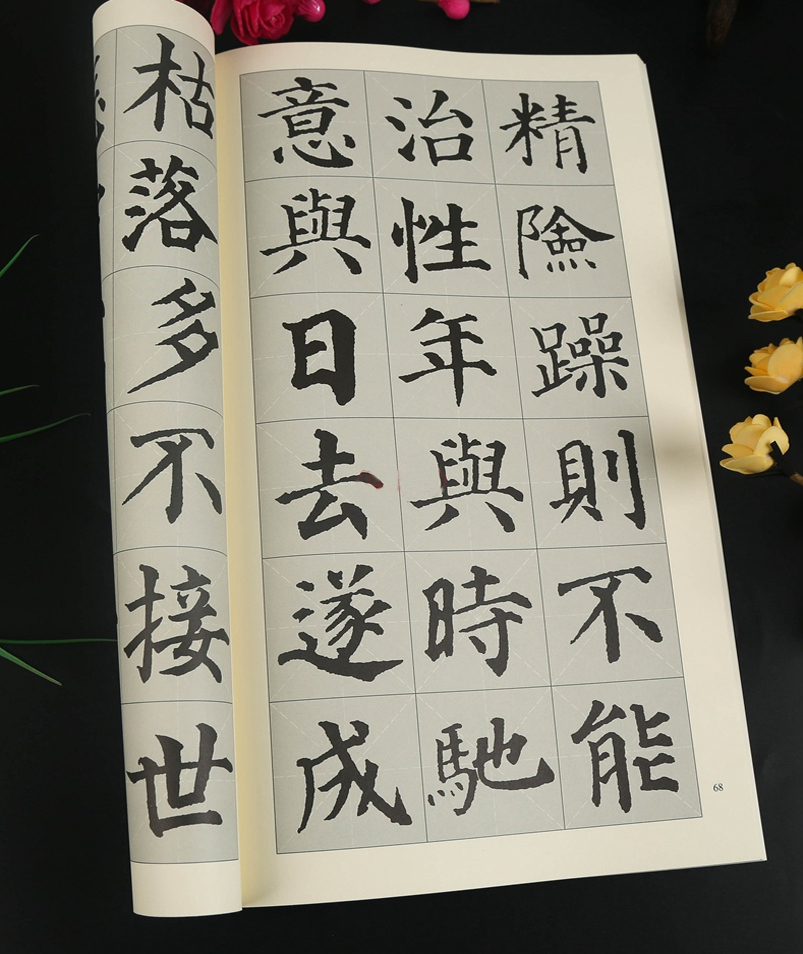 精險躁則不能
治性年與時馳
意與日去遂成
枯落多不接世
68